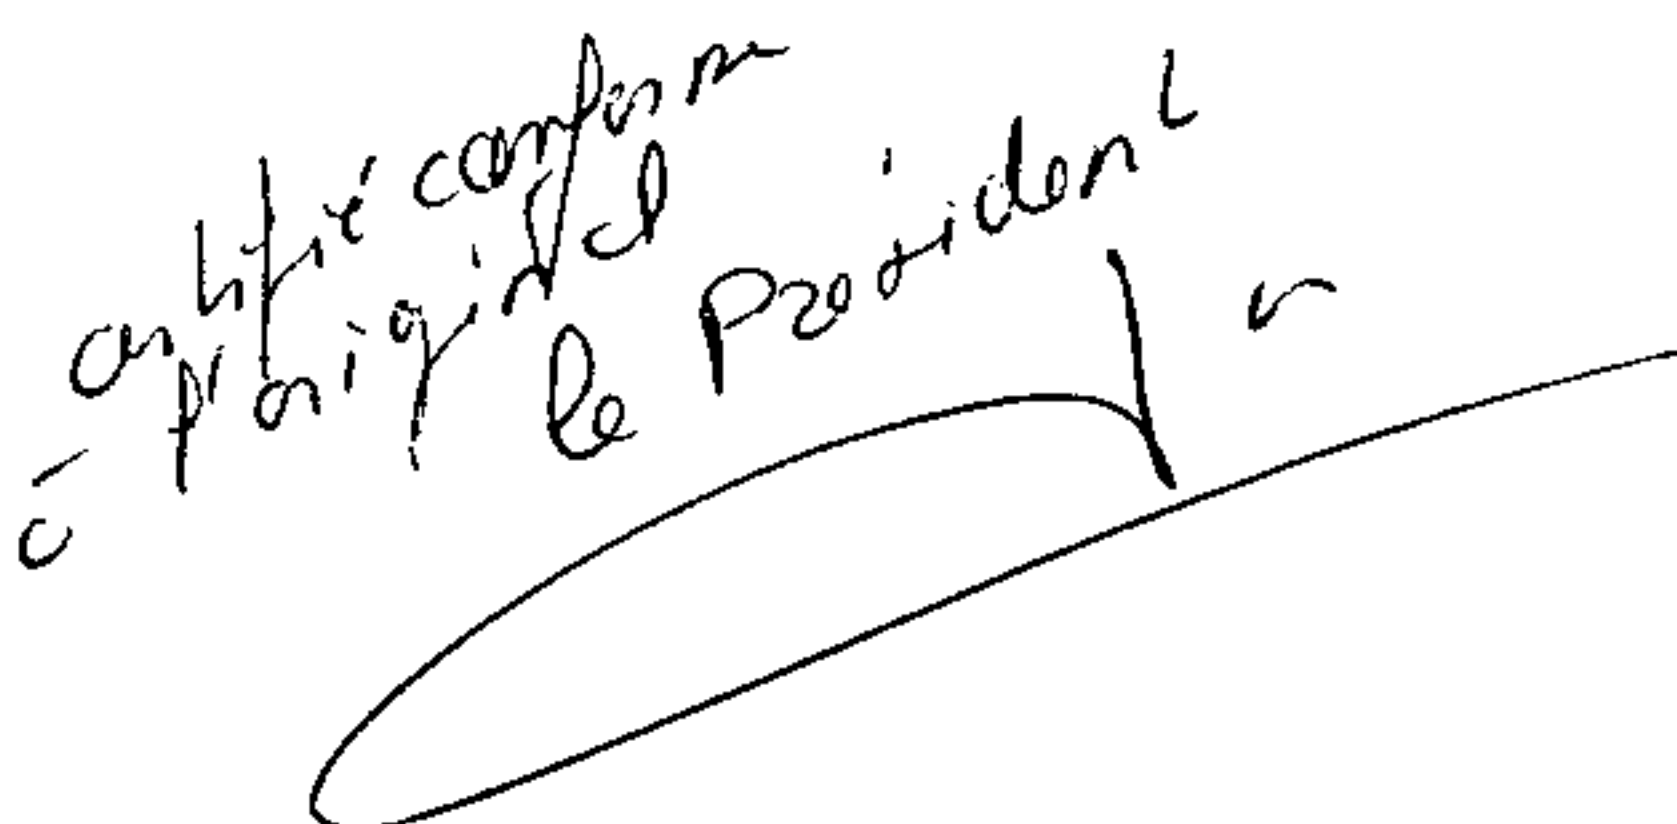 certifié conforme
à l'original
le Président